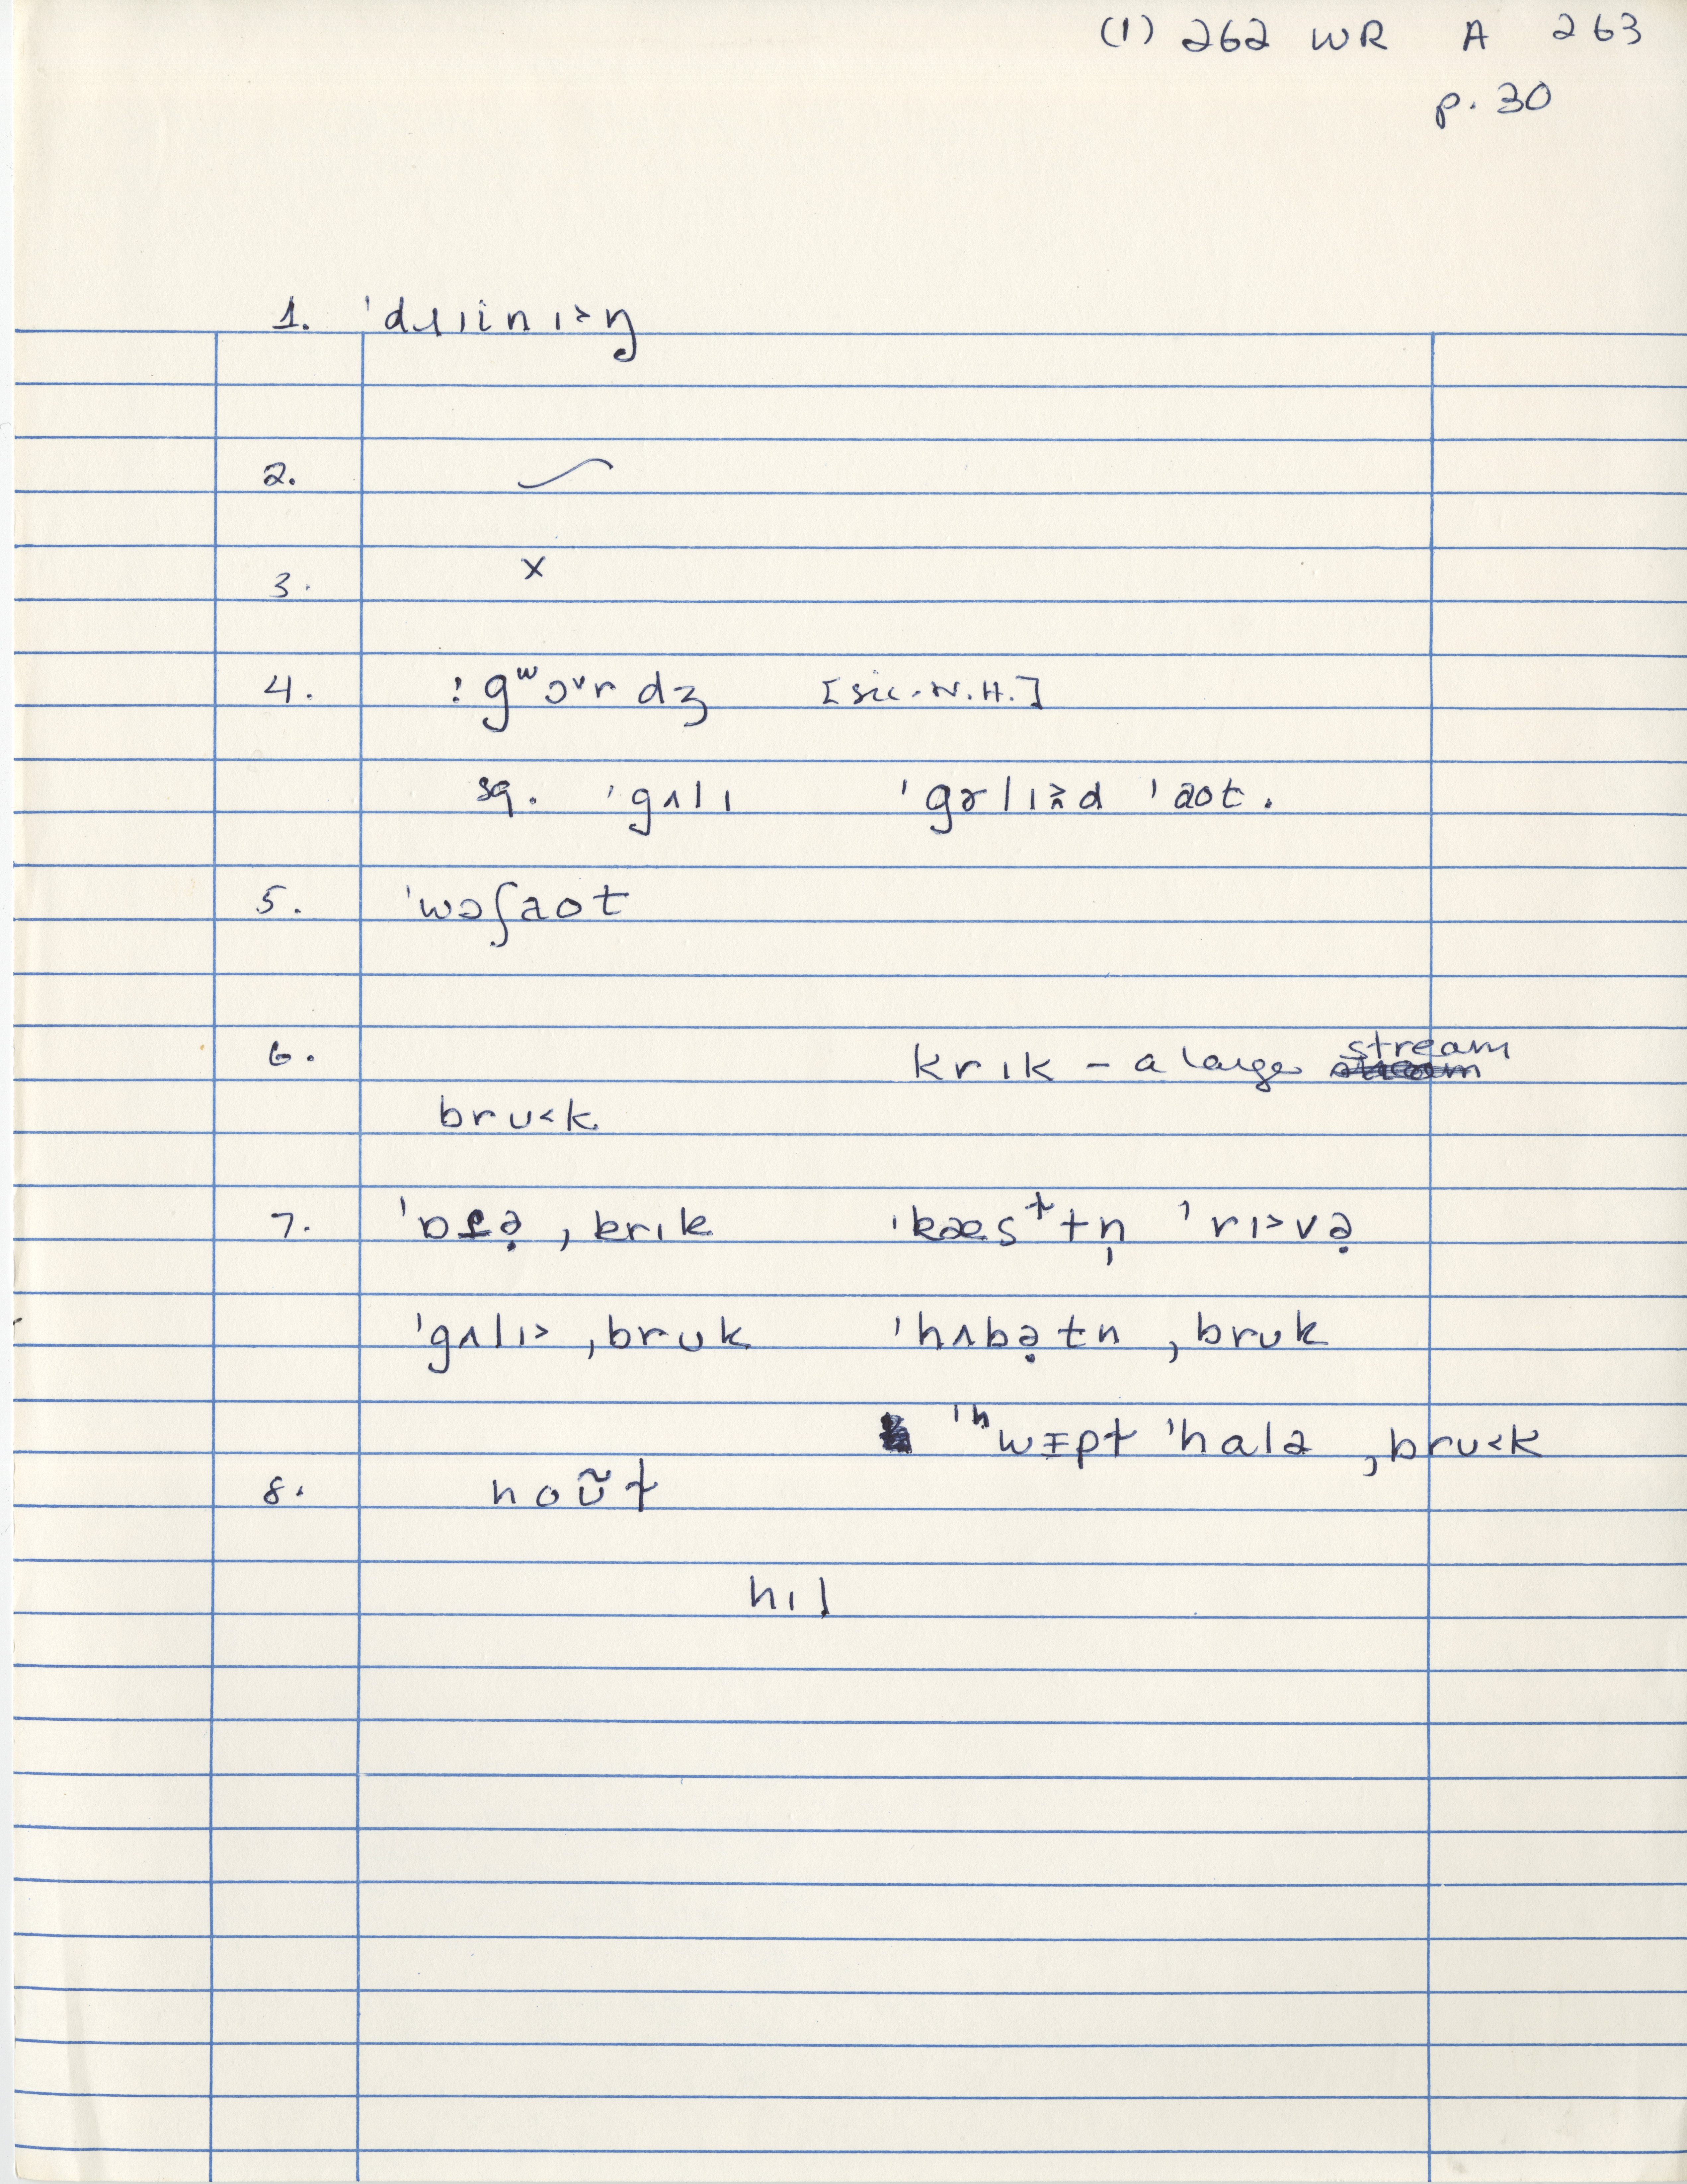 (1) 262 WR A 263
p. 30
1. ˈdɹɪinɪ˃ŋ
2. ⁓
3. x
4. ⁝ gʷɔ˅r dʒ [sic. N.H.]
sq. ˈgʌlɪ ˈgɚlɪd ˈaot.
5. ˈwɔʃaot
6. krɪk – a large stream
brʊ˂k
7. krɪk ˈrɪ˃və̣
ˈgʌlɪ˃ ˌbrʊk ˈhʌbə̣tn ˌbrʊk
ˈʰwɪpt ˈhalə ˌbrʊ˂k
8. noʊ̃t
hɪl